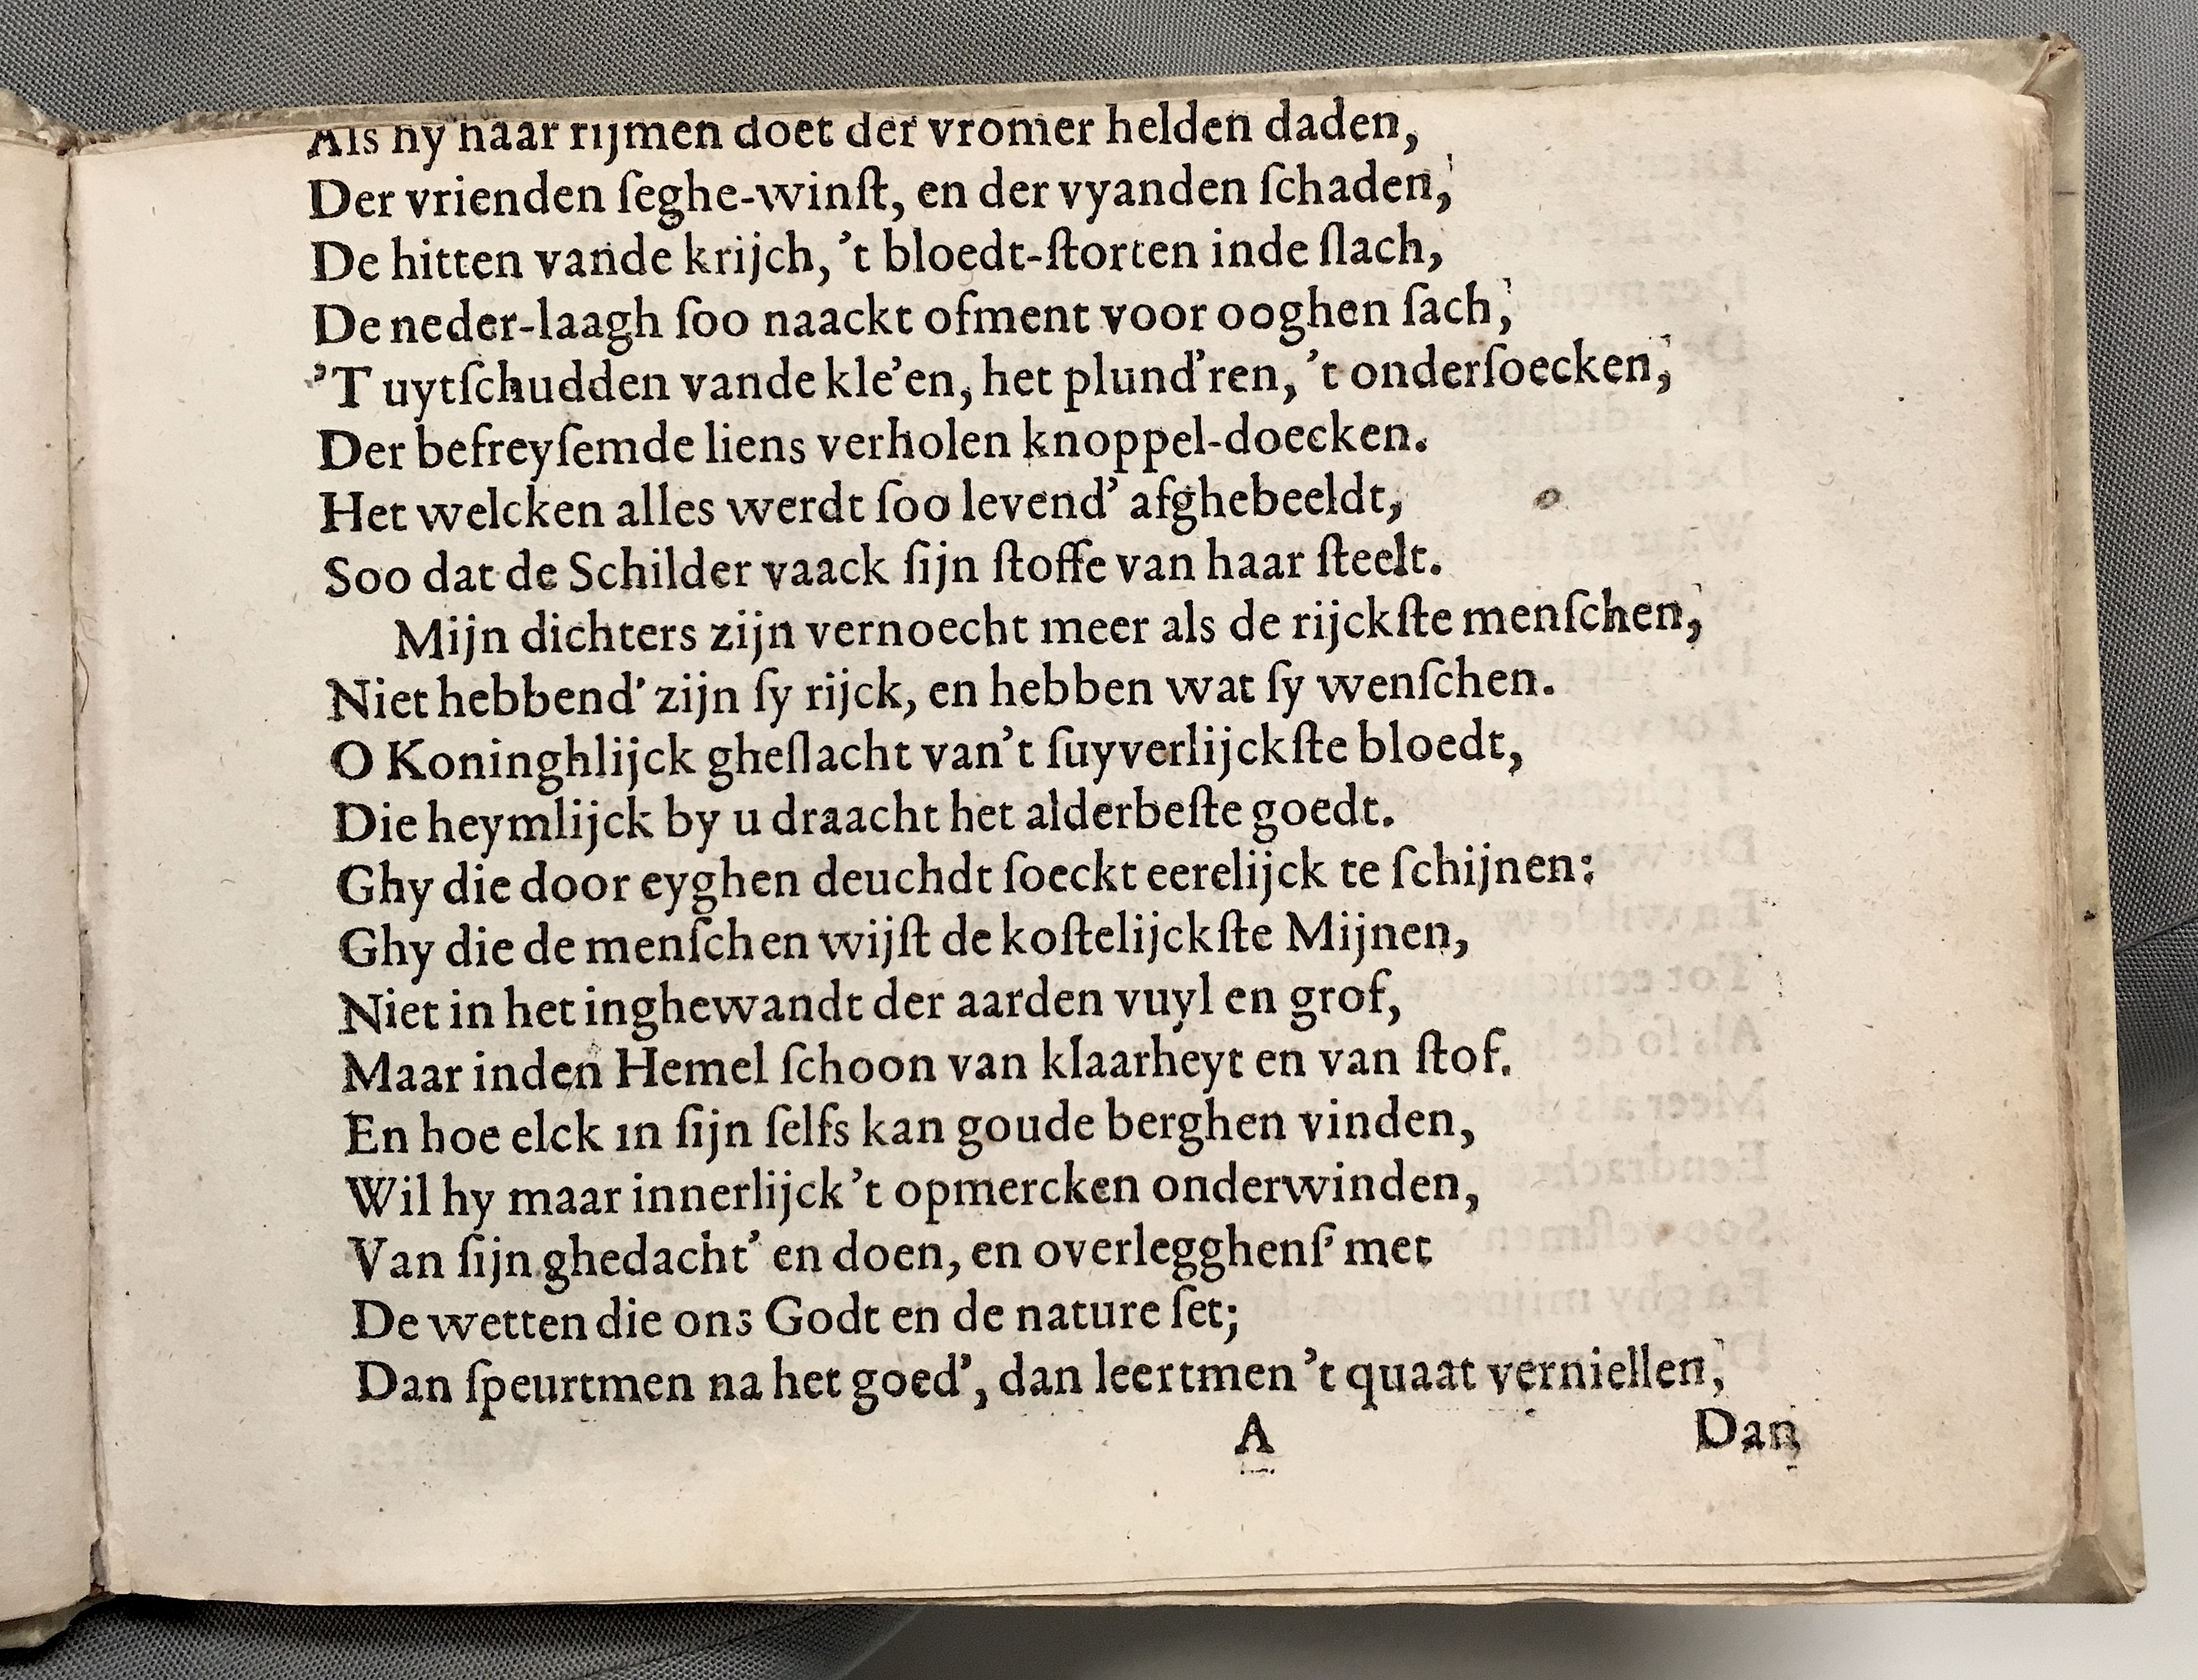 Als hy haar rijmen doet der vromer helden daden,
Der vrienden ſeghe-winſt, en der vyanden ſchaden,
De hitten vande krijch, 't bloedt-ſtorten inde ſlach,
De neder-laagh ſoo naackt ofment voor ooghen ſach,
'T uytſchudden vande kle'en, het plund'ren, 't onderſoecken,
Der befreyſemde liens verholen knoppel-doecken.
Het welcken alles werdt ſoo levend' afghebeeldt,
Soo dat de Schilder vaack ſijn ſtoffe van haar ſteelt.
Mijn dichters zijn vernoecht meer als de rijckſte menſchen,
Niet hebbend' zijn ſy rijck, en hebben wat ſy wenſchen.
O Koninghlijck gheſlacht van't ſuyverlijckſte bloedt,
Die heymlijck by u draacht het alderbeſte goedt.
Ghy die door eyghen deuchdt ſoeckt eerelijck te ſchijnen:
Ghy die de menſchen wijſt de koſtelijckſte Mijnen,
Niet in het inghewandt der aarden vuyl en grof,
Maar inden Hemel ſchoon van klaarheyt en van ſtof.
En hoe elck in ſijn ſelfs kan goude berghen vinden,
Wil hy maar innerlijck 't opmercken onderwinden,
Van ſijn ghedacht' en doen, en overlegghenſ' met
De wetten die ons Godt en de nature ſet;
Dan ſpeurtmen na het goed', dan leertmen 't quaat verniellen,
A
Dan